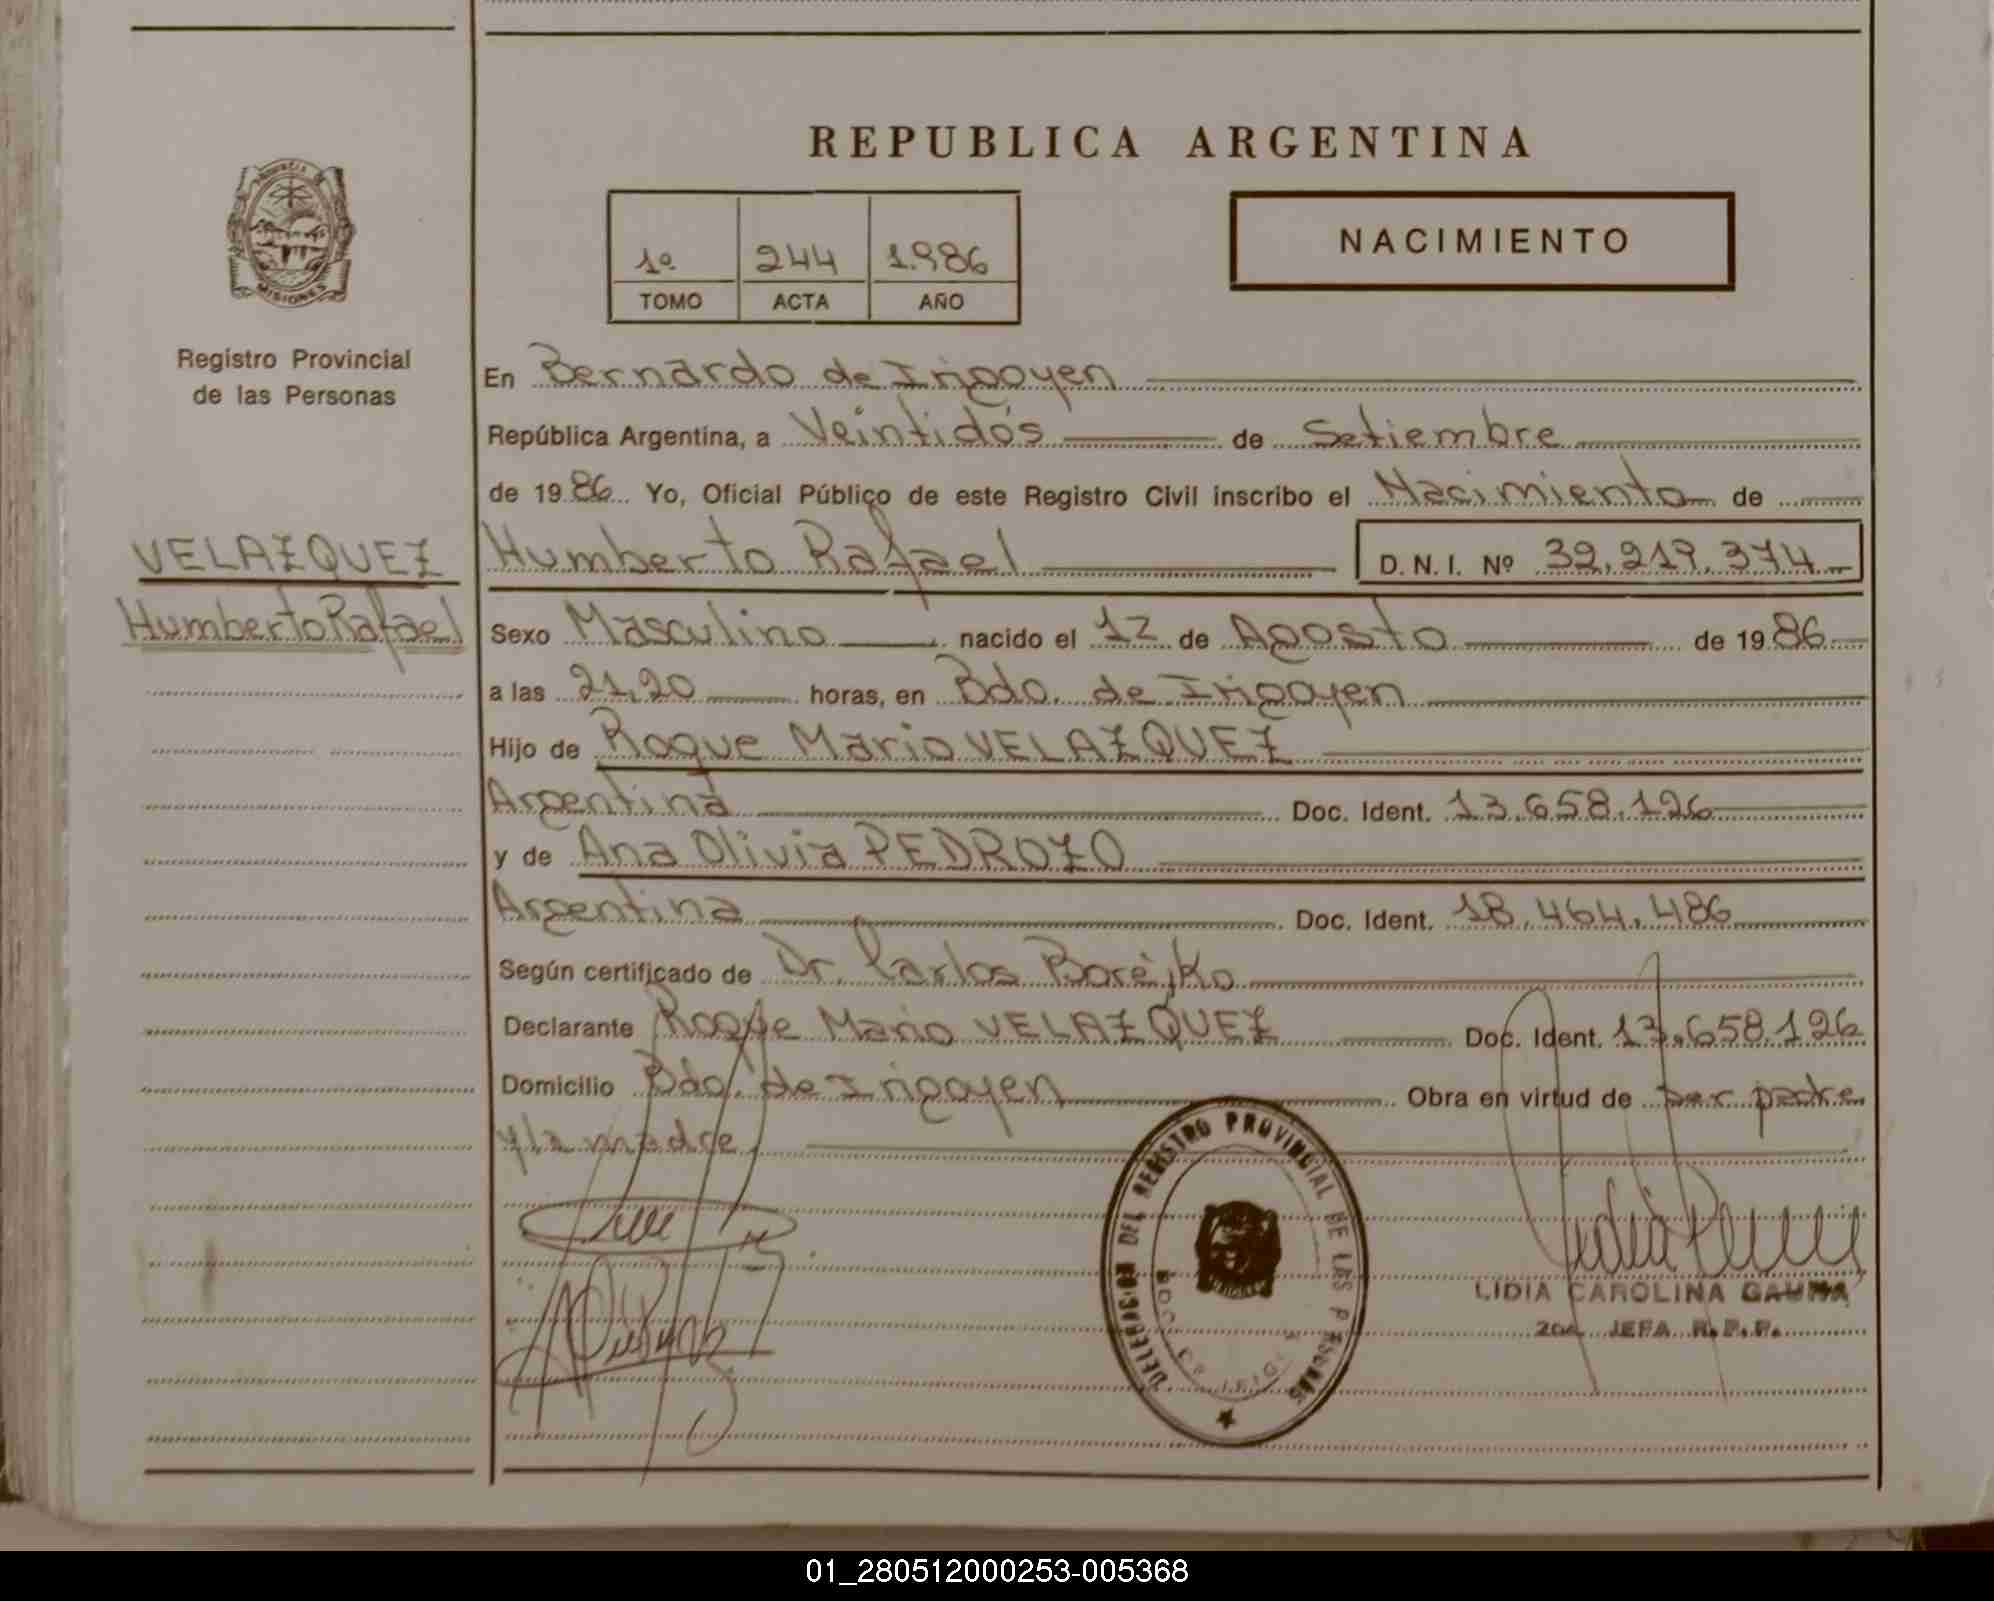 REPUBLICA ARGENTINA
MISIONES
1º 244 1.986
TOMO ACTA AÑO
NACIMIENTO
Registro Provincial
de las Personas
VELAZQUEZ
Humberto Rafael
En Bernardo de Irigoyen
República Argentina, a Veintidós de Setiembre
de 1986 Yo, Oficial Público de este Registro Civil inscribo el Nacimiento de
Humberto Rafael D. N. I. Nº 32.219.374
Sexo Masculino nacido el 12 de Agosto de 1986
a las 21,20 horas, en Bdo. de Irigoyen
Hijo de Roque Mario VELAZQUEZ
Argentina Doc. Ident. 13.658.126
y de Ana Olivia PEDROZO
Argentina Doc. Ident. 18.464.486
Según certificado de Dr. Carlos Borejko
Declarante Roque Mario VELAZQUEZ Doc. Ident. 13.658.126
Domicilio Bdo. de Irigoyen Obra en virtud de ser padre
y la madre
DELEGACION DEL REGISTRO PROVINCIAL DE LAS PERSONAS
LIDIA CAROLINA GAUNA
2da. JEFA R.P.P.
01_280512000253-005368